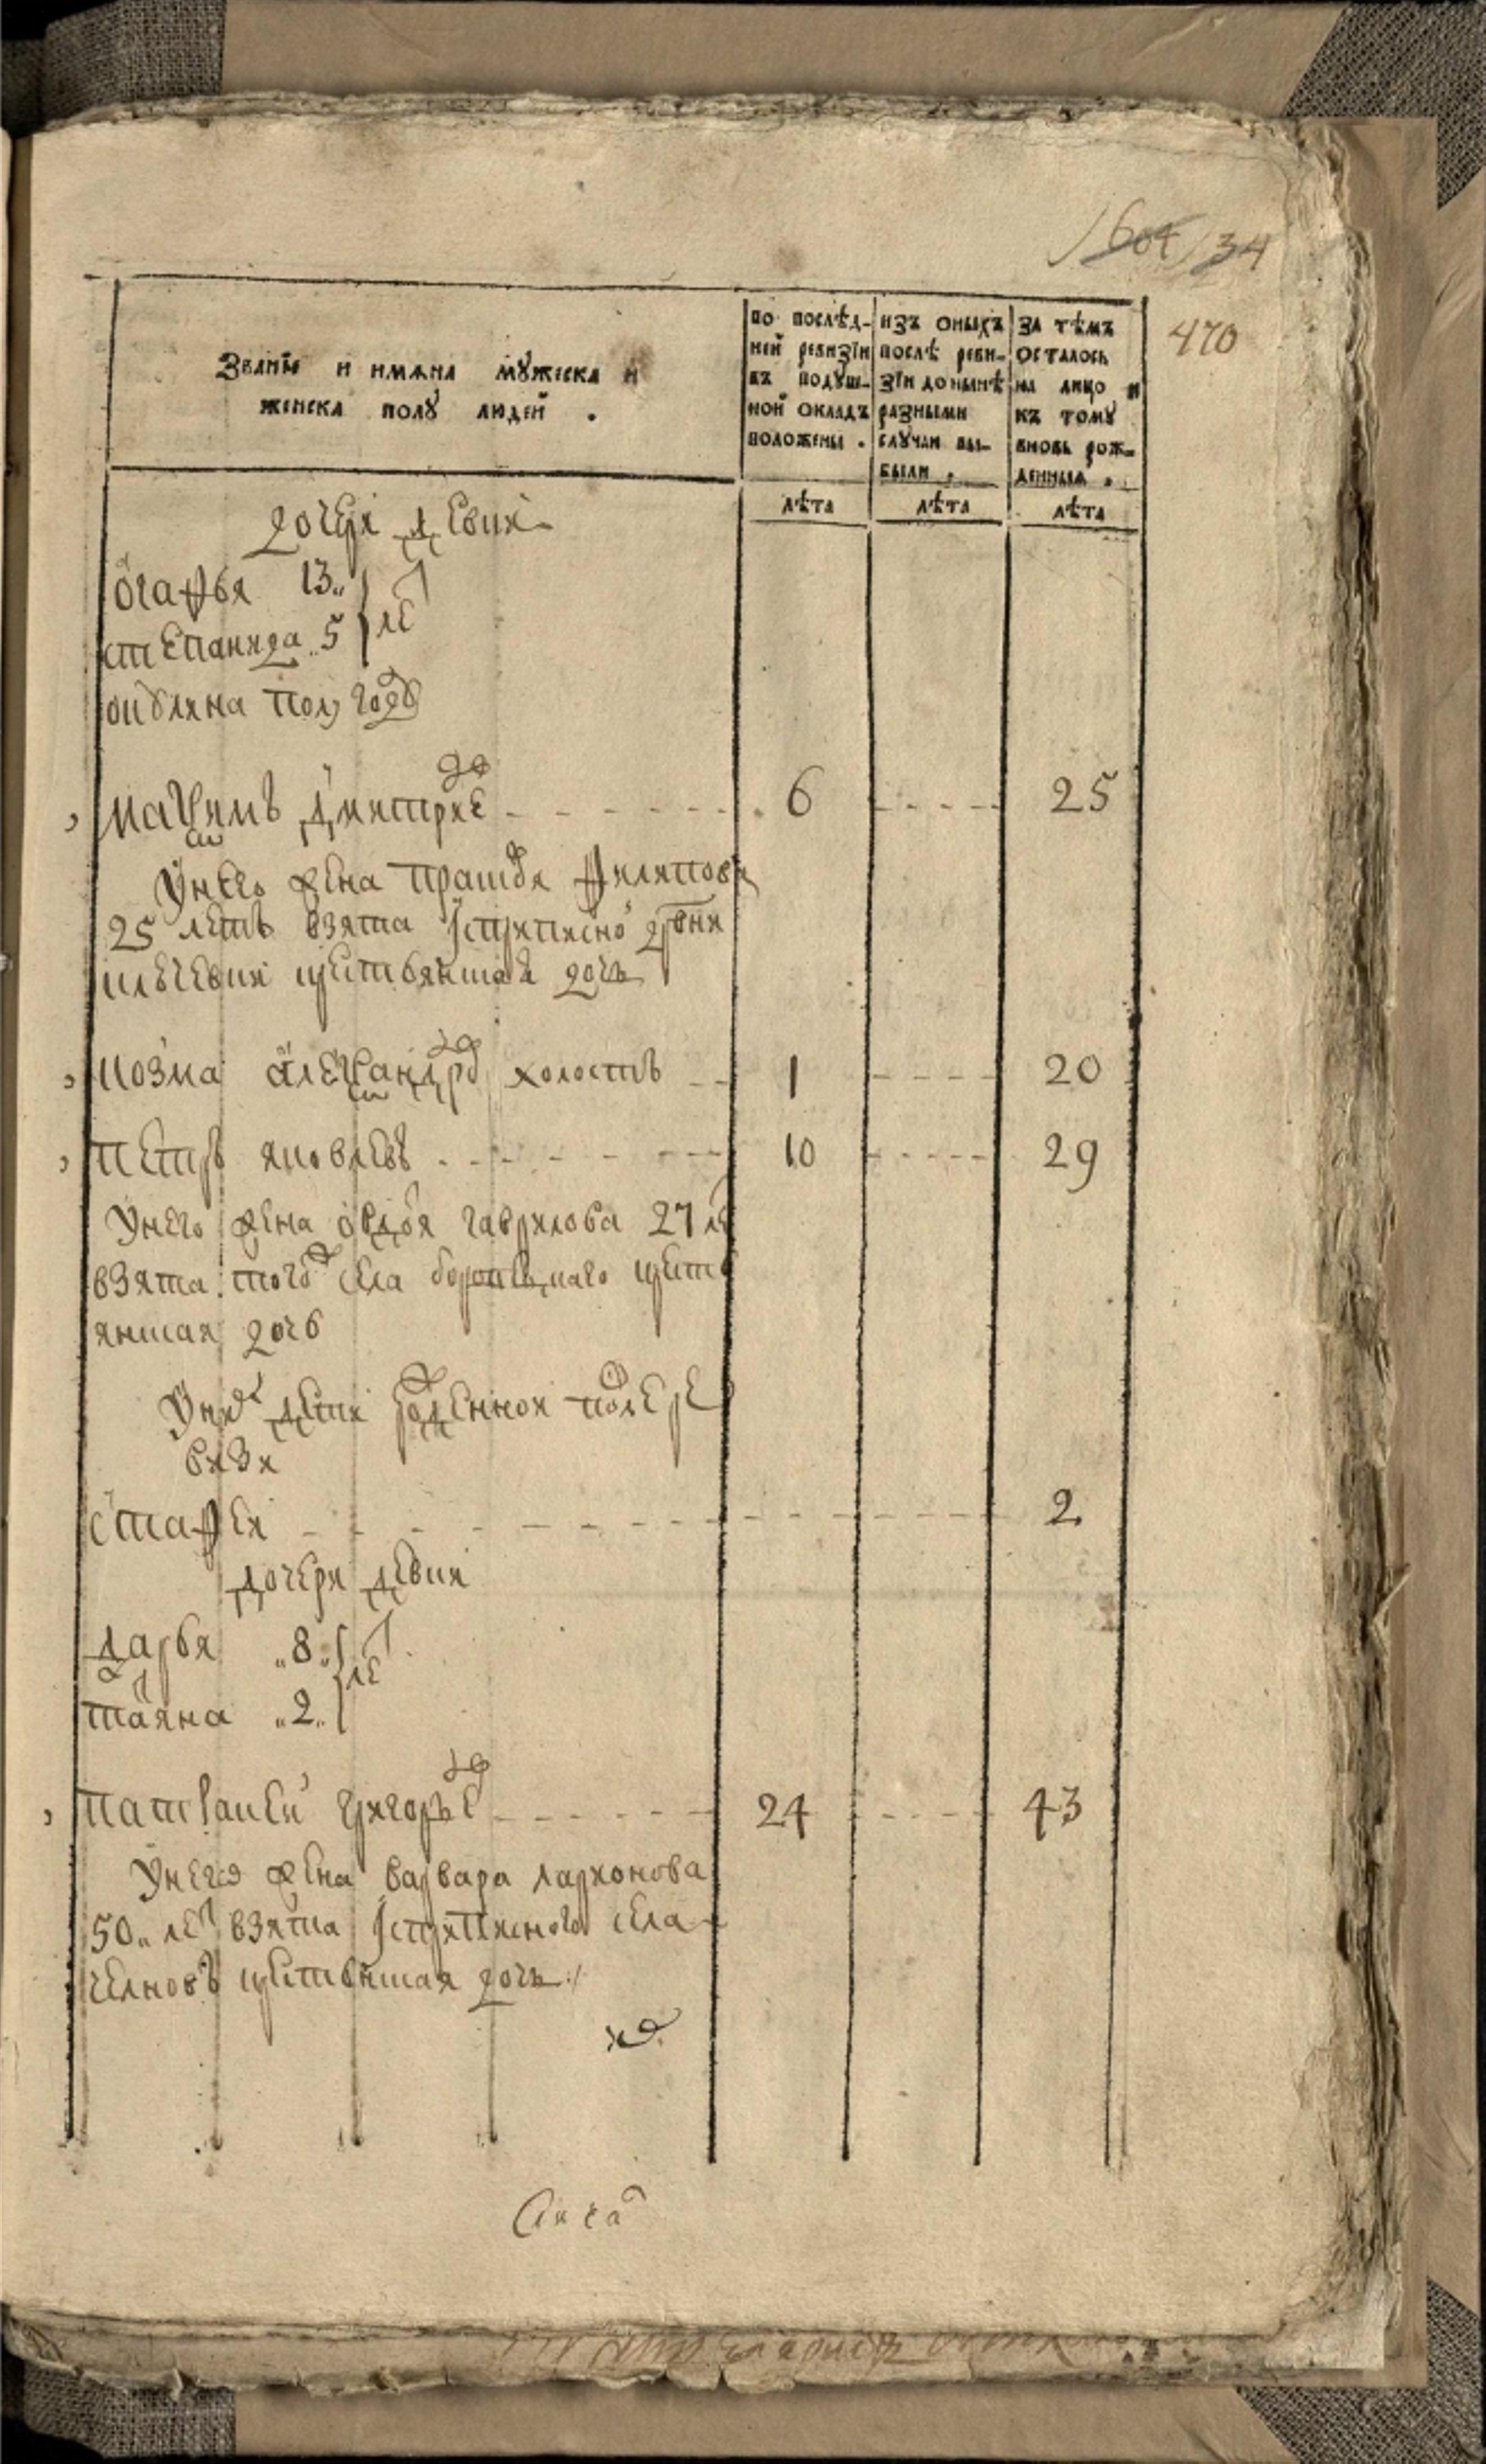 604 / 34
470
Званїе и имѧна мꙋжеска и
женска полꙋ людей .
по послѣд-
ней ревизїи
въ подꙋш-
ной окладъ
положены .
изъ оныхъ
послѣ реви-
зїи донынѣ
разными
слꙋчаи вы-
были .
за тѣмъ
осталось
на лицо и
къ тому
вновь рож-
денныя .
лѣта лѣта лѣта
дочери девки
огафья 13 „
степанида „ 5 } лет
ульяна пол году
Маѯимъ Дмитрие в 6 25
У него жена прасковья филипова
25 летъ взята
крестьянская дочь
козма алеѯандров холостъ 1 20
петръ яковлевъ 10 29
У него жена овдотя гаврилова 27 ле
взята того ж села крестъ
янская дочь
У них дети рожденной после ре
визи
стафей 2
дочери девки
дарья „ 8 „
татяна „ 2 „ } лет
пантелей григорьев 24 43
У него жена варвара ларионова
50 „ лет взята села
челновъ крестьянская дочь